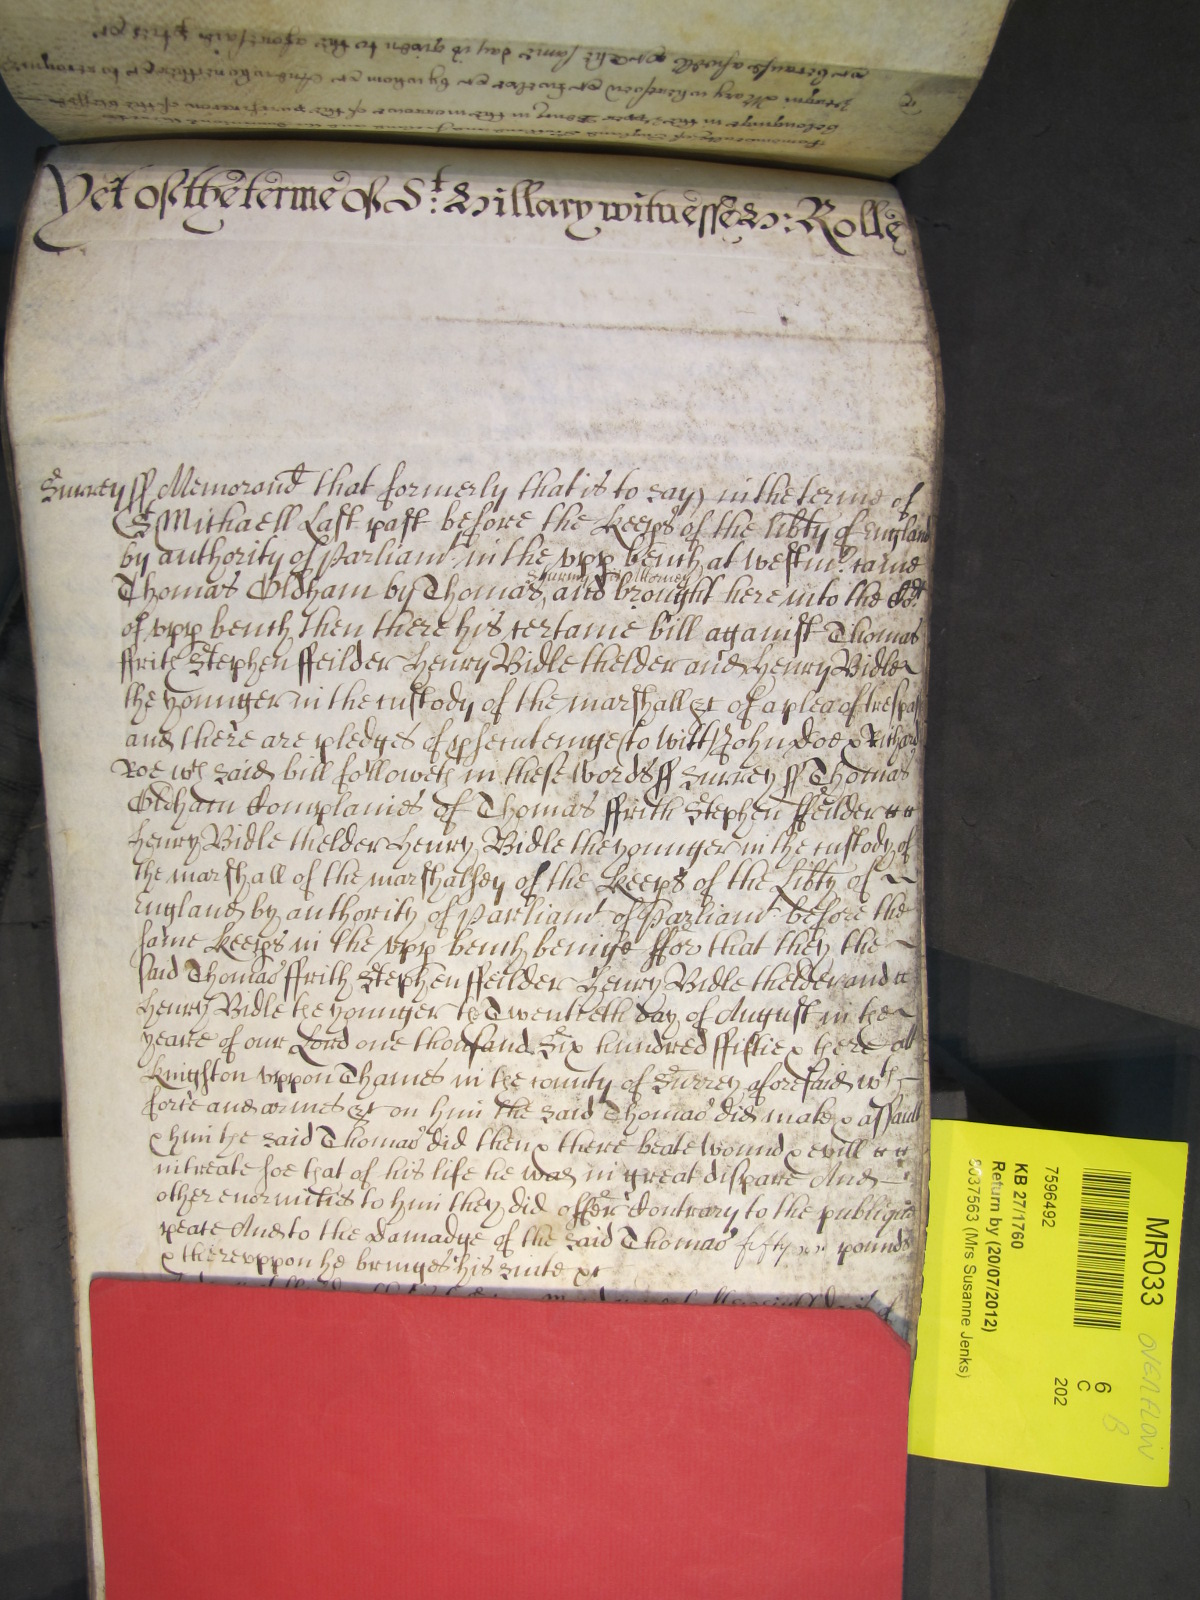 Yet of the terme of St: Hillary witnesseth: Rolle
Surrey ss Memorand that formerly that is to say in the terme of
St Michaell Last past before the Keeps of the libty of England
by authority of Parliamt in the upp bench at westmr came
Sturmy his Attorney
Thomas Oldham by Thomas and brought here into the Cort
of upp bench then there his certaine bill against Thomas
ffrith Stephen ffeilder Henry Bidle thelder and Henry Bidle
the younger in the custody of the marshall &c of a plea of trespas
and there are pledges of psecuteinge to witt John doe & Richard
Roe wch said bill followeth in these words ss Surrey ss Thomas
Oldham Complaines of Thomas ffrith Stephen ffeilder
Henry Bidle thelder Henry Bidle the younger in the custody of
the marshall of the marshalsey of the Keeps of the Libty of
England by authority of Parliamt of Parliamt before the
same Keeps in the upp bench beinge ffor that they the
said Thomas ffrith Stephen ffeilder Henry Bidle thelder and
Henry Bidle the younger the Twentieth day of August in the
yeare of our Lord one thousand Six hundred ffiftie & there att
Kingston uppon Thames in the county of Surrey aforesaid wth
force and armes &c on him the said Thomas did make & assault
& him the said Thomas did then & there beate wound & evill
intreate soe that of his life he was in great dispare And
other enormities to him they did offer Contrary to the publique
peace And to the damadge of the said Thomas fifty pounds
& thereuppon he bringes his suite &c
MR033
OVERFLOW
B
6
C
202
7596492
KB 27/1760
Return by (20/07/2012)
5037563 (Mrs Susanne Jenks)